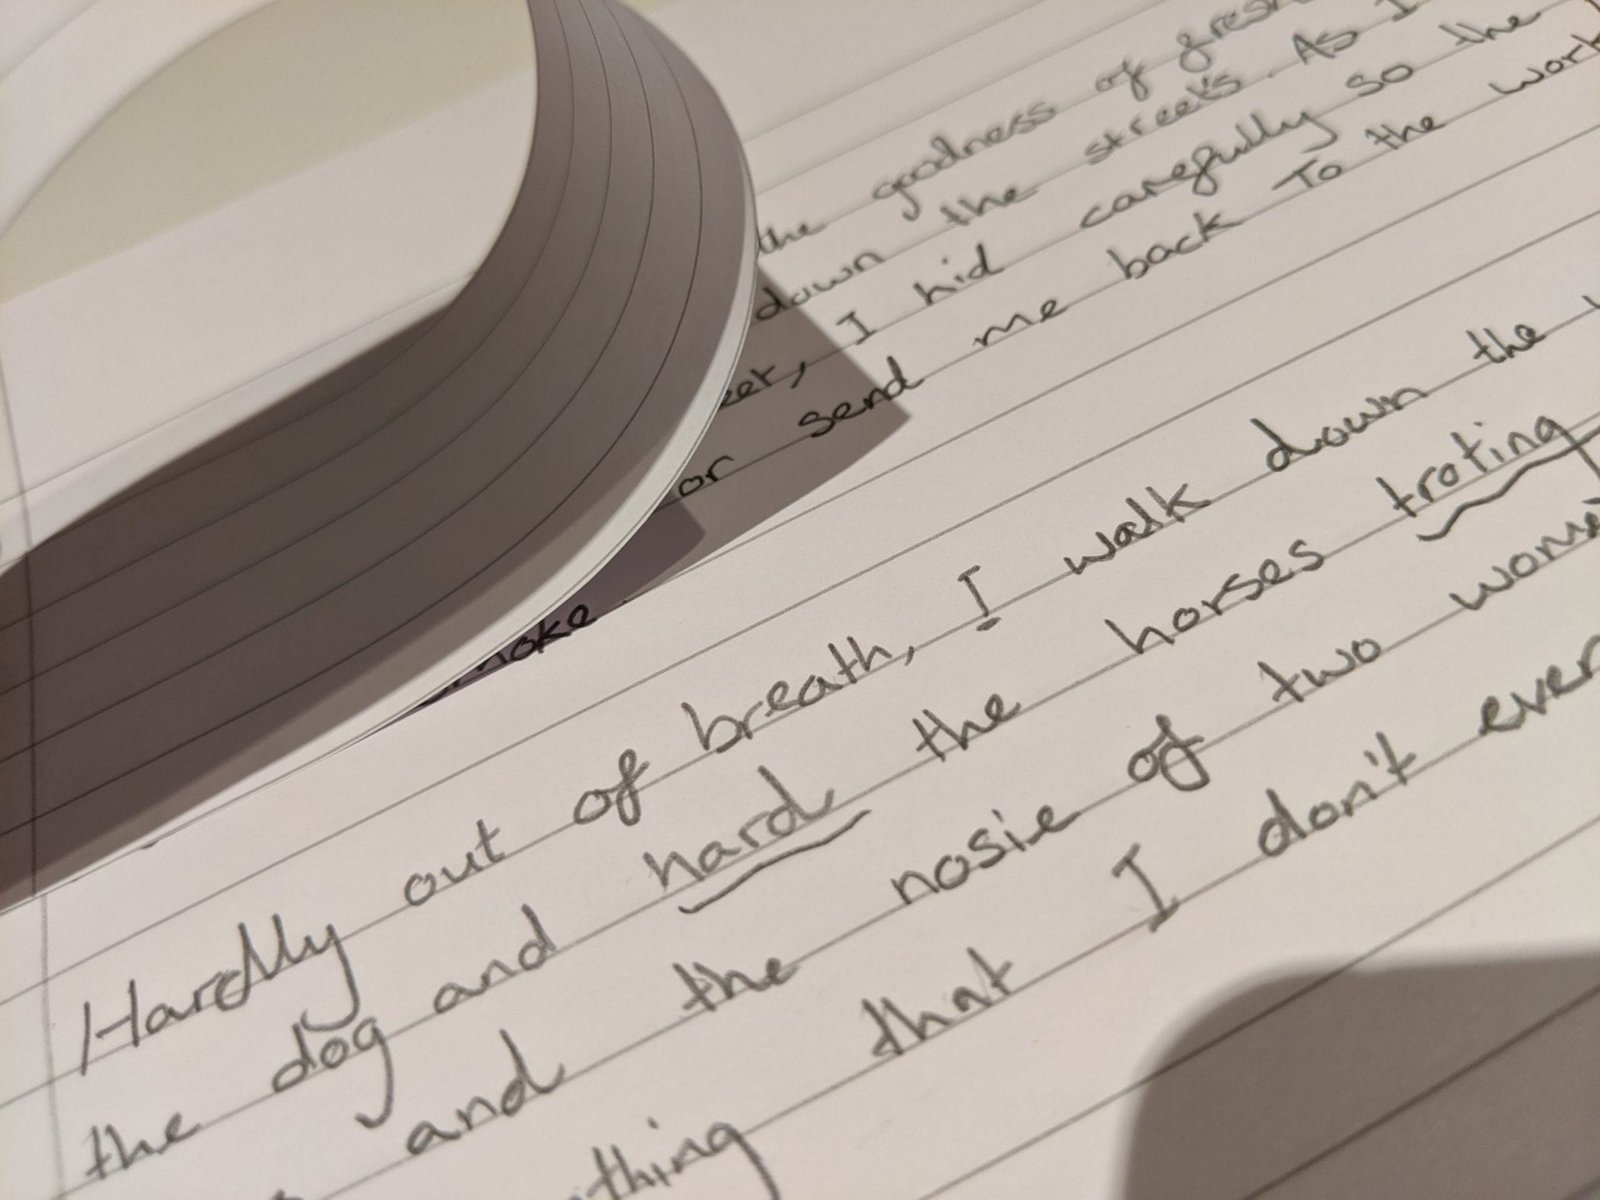 the goodness of fresh
down the streets. As I
eet, I hid carefully so the
or send me back To the work
moke
Hardly out of breath, I walk down the
the dog and hard the horses troting
and the nosie of two
thing that I don't even